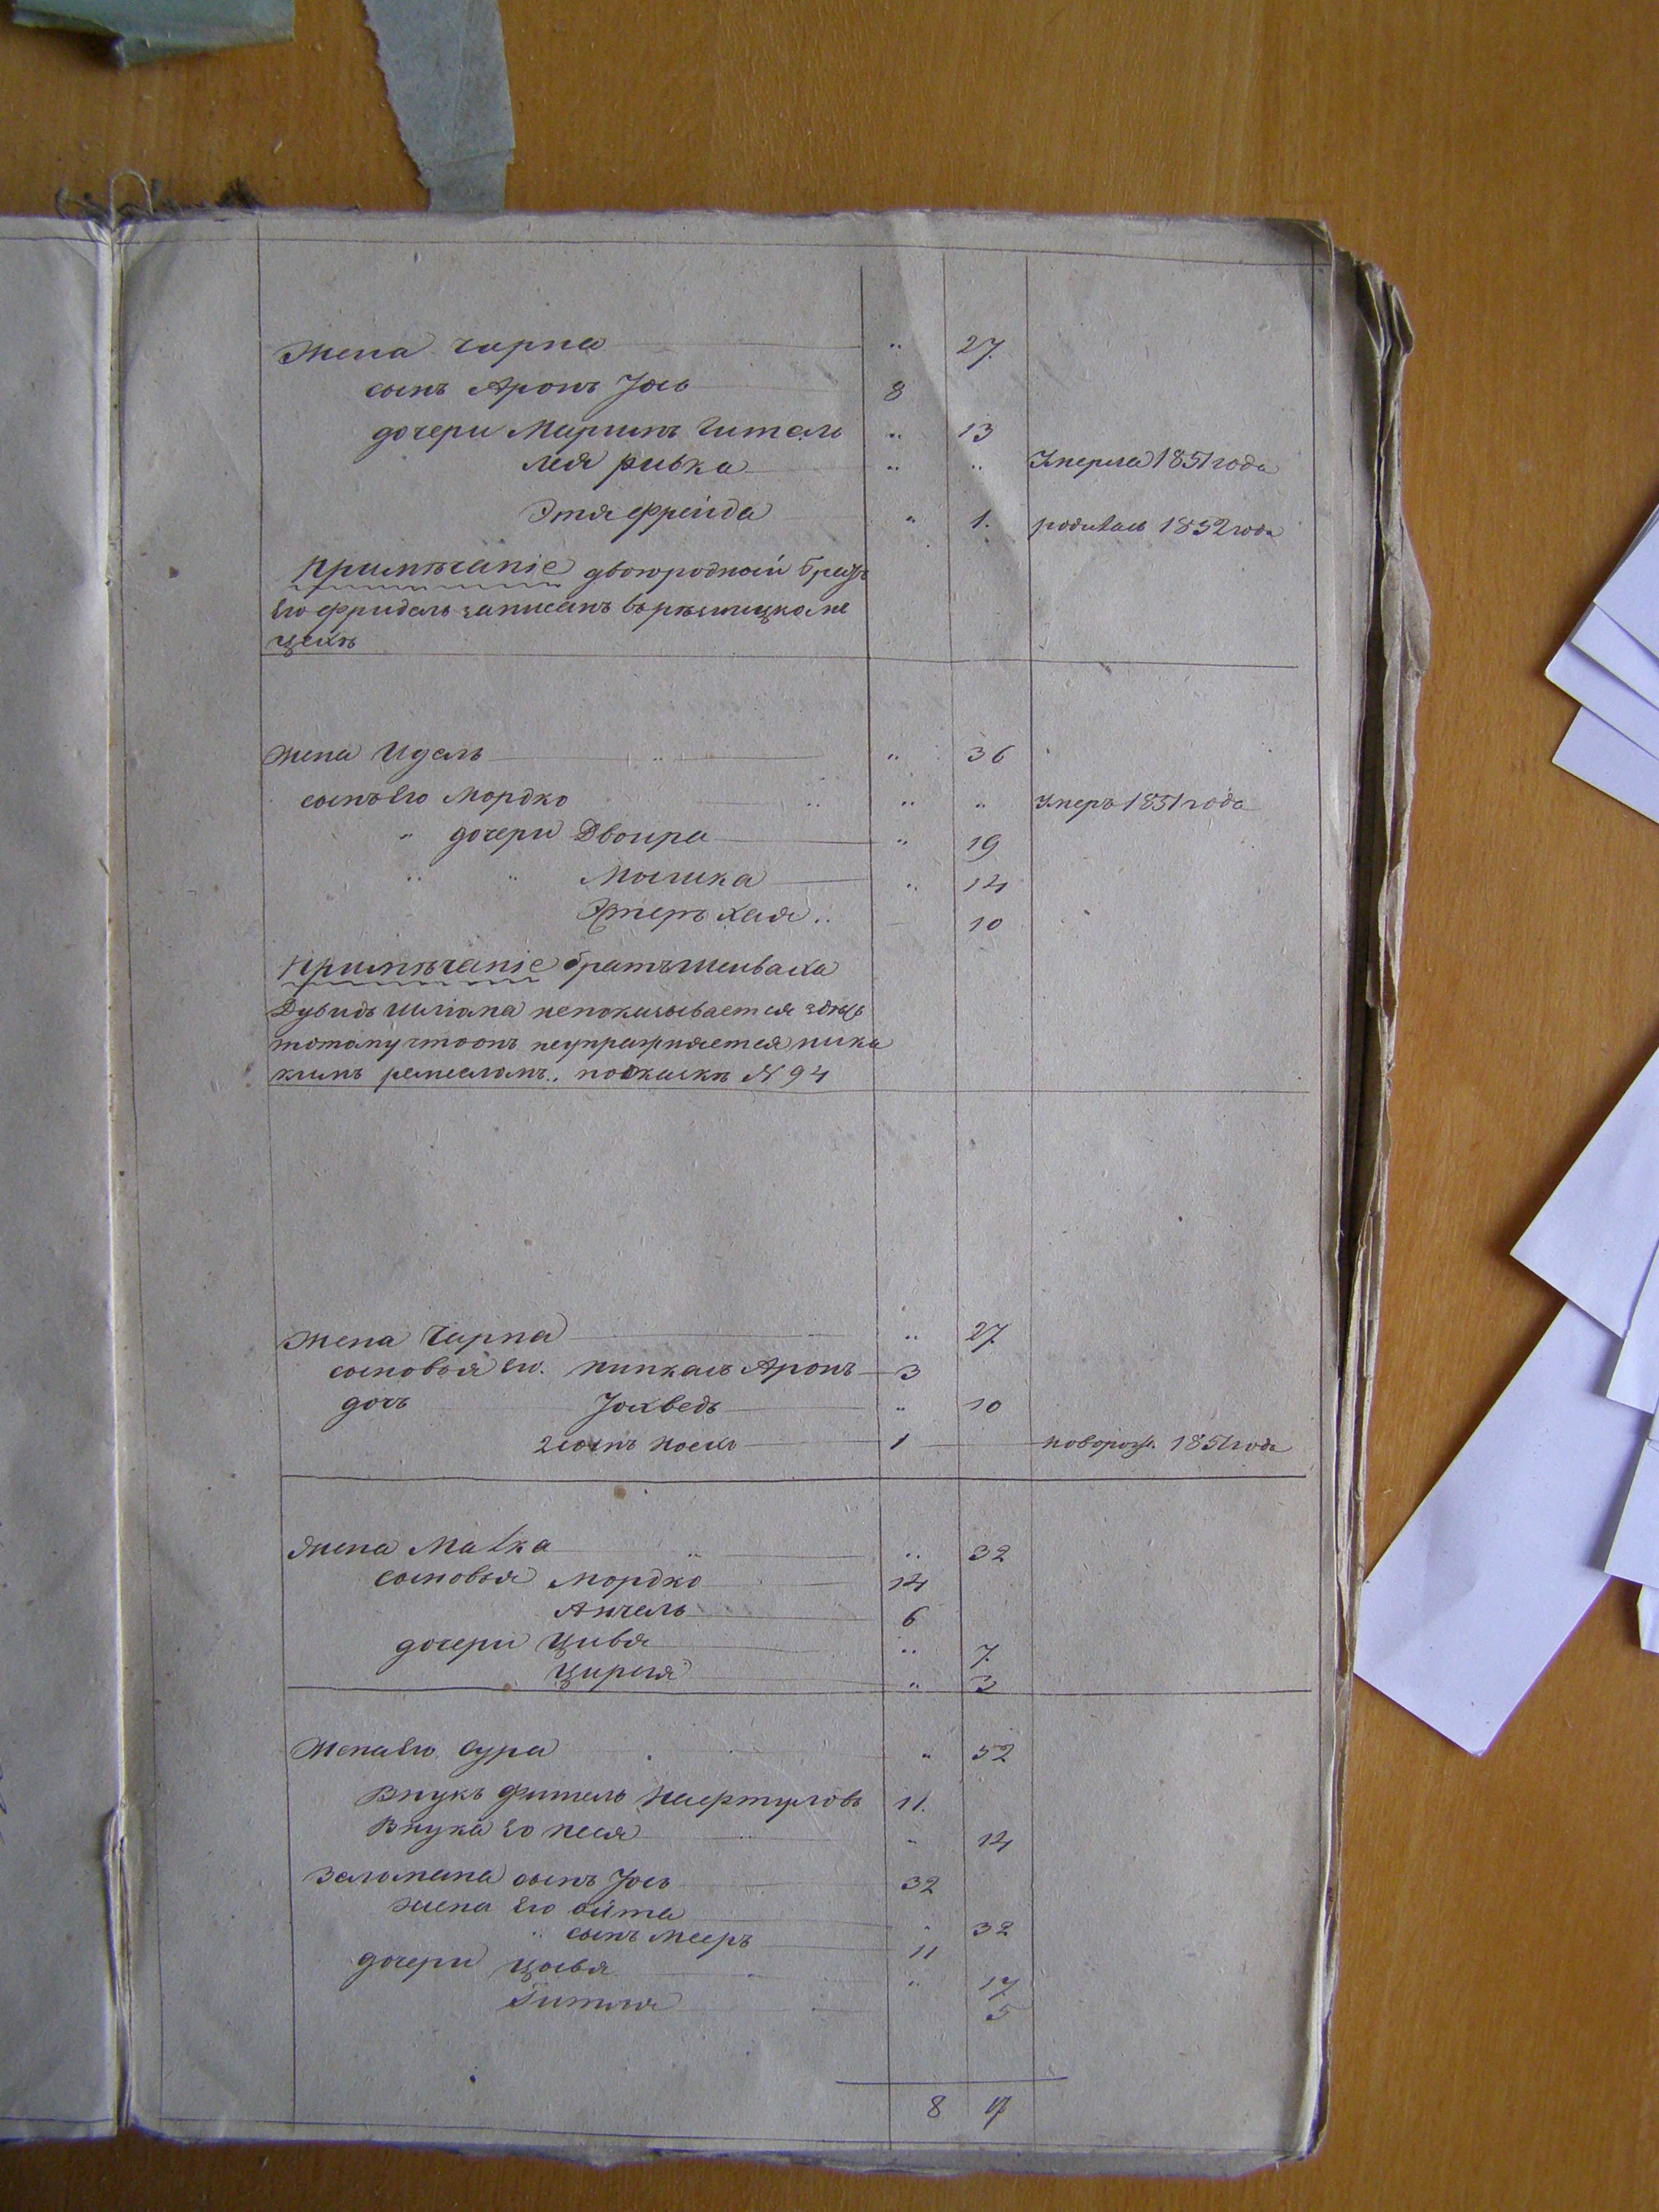 Жена Чарна " 27
сынъ Аронъ Іось 8
дочери Маріимъ Гитель " 13
Лея Ривка " " Умерла 1851 года
Этя Фрейда " 1. родилась 1852 года
Примѣчаніе двоюродный братъ
его Фридель записанъ въ рѣзницкомъ
цехѣ
Жена Идель " 36
сынъ его Мордко " " Умеръ 1851 года
" дочери Двоира " 19
" " Мошка " 14
Эстеръ Хая 10
Примѣчаніе братъ Шеиваха
Дувидъ Шліома непоказывается здѣсь
потому что онъ неупражняется ника
кимъ ремесломъ. по сказкѣ N 94
Жена Чарна " 27
сыновья его. Пинкасъ Аронъ 3
дочь Іохведь " 10
2 сынъ Йосль 1 новорож. 1851 года
Жена Малка " 32
сыновья Мордко 14
Анчель 6
дочери Цивья " 7
Цирля " 3
Жена его Сура " 52
Внукъ Фитель 11.
Внука его Песя " 14
Заломана сынъ Іось 32
жена его Ойта " 32
" сынъ Мееръ 11
дочери Цывья " 17
Гитля 5
8 17